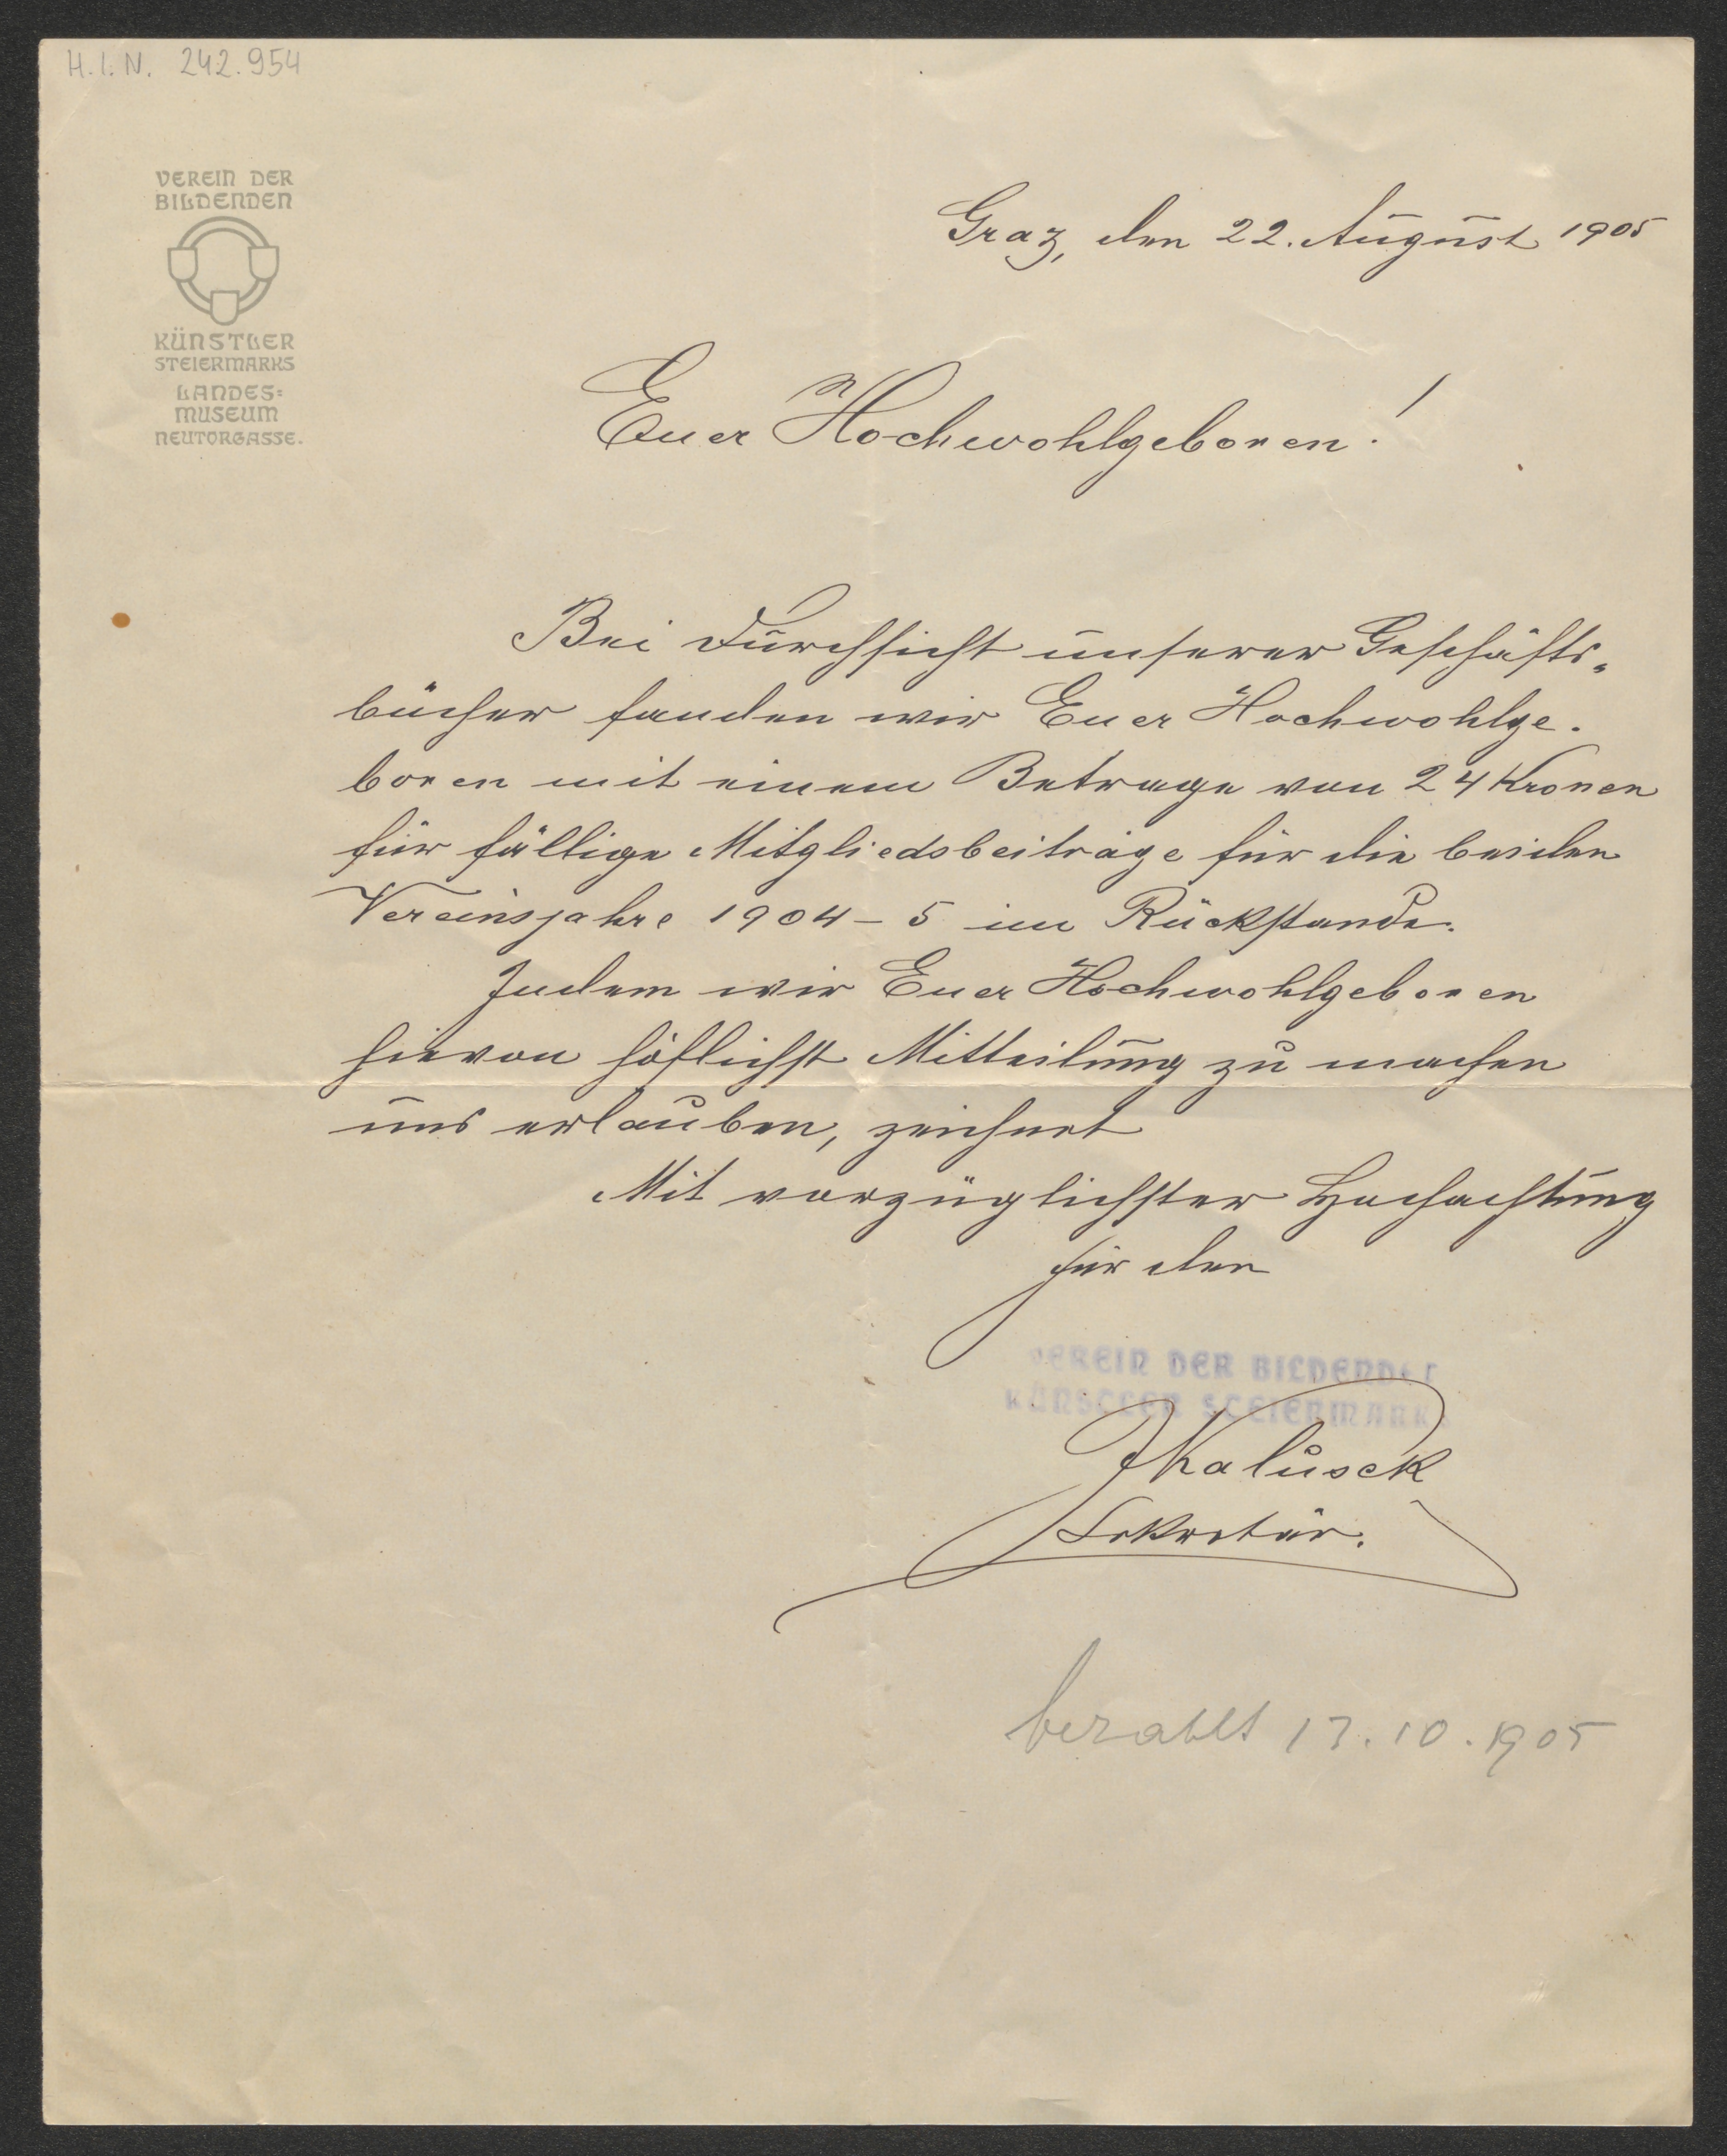 H.I.N. 242.954
VEREIN DER
BILDENDEN
KÜNSTLER
STEIERMARKS
LANDES=
MUSEUM
NEUTORGASSE.
Graz, den 22. August 1905
Euer Hochwohlgeboren!
Bei Durchsicht unserer Geschäfts-
bücher fanden wir Euer Hochwohlge-
boren mit einem Betrage von 24 Kronen
für fällige Mitgliedsbeiträge für die beiden
Vereinsjahre 1904-5 im Rückstande.
Indem wir Euer Hochwohlgeboren
hievon höflichst Mitteilung zu machen
uns erlauben, zeichnet
Mit vorzüglichster Hochachtung
für den
VEREIN DER BILDENDEN
KÜNSTLER STEIERMARKS
Kalusek
Sekretär.
bezahlt 17.10.1905